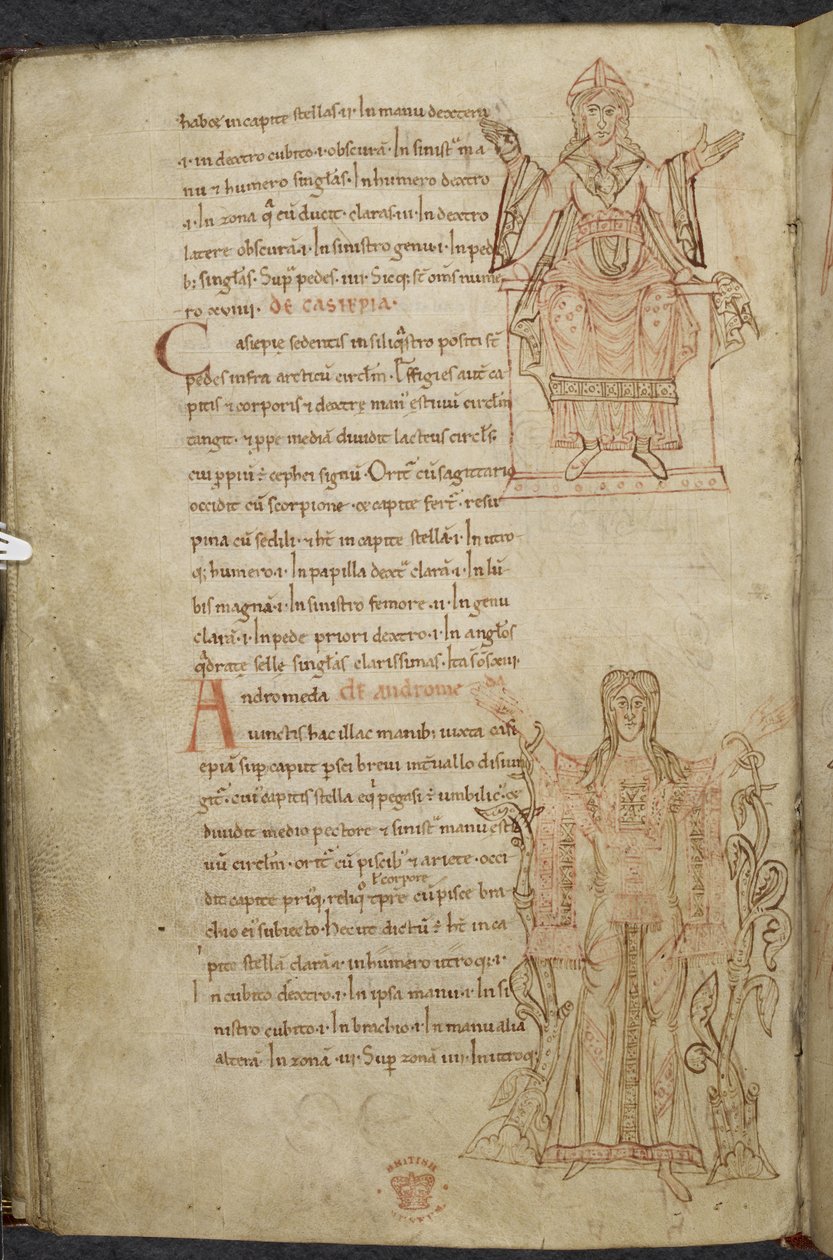 habet in capite stellas·ii· In manu dextera
·i· in dextro cubito·i·obscurā· In sinistᵃ ma
nu ⁊ humero singłas· In humero dextro
·i· In zona qᵃ cū ducit· claras·iii· In dextro
latere obscurā·i· In sinistro genu·i· In pedi
b; singłas· Supᵃ pedes·iiii· Sicq; sт̄ oms̄ nume
ro xviiii· DE CASIEPIA·
Casiepię sedentis in siliqᵃstro positi sт̄
pedes infra arcticū circłm· Effigies auт̄ ca
pitis ⁊ corporis ⁊ dextrę man᾽ ęstiuū circłm
tangit· ⁊ ꝓpe mediā diuidit lacteus circłs·
cui ꝓpiū ē cephei signū· Oritᷣ cū sagittario
occidit cū scorpione· ⁊ capite fertᷣ· resu
pina cū sedili· ⁊ hт̄ in capite stellā·i· In utro
q; humero·i· In papilla dextᵃ clarā·i· In lū
bis magnā·i· In sinistro femore·ii· In genu
clarā·i· In pede priori dextro·i· In angłos
qᵃdratę sellę singłas clarissimas· Ita s̄ oms̄ xiii·
Andromeda DE ANDROMEDA
uinctis hac illac manib; iuxta casi
epiā sup̄ caput ꝑsei breui intᷣuallo disiun
gitᷣ· cui᾽ capitis stella eqⁱ pegasi ē umbilic᾽· ⁊
diuidit medio pectore ⁊ sinistᵃ manu esti
uū circłm· oritᷣ cū piscib᾽ ⁊ ariete· occi
ł corpore
dit capite priq᾽, reliqᵒ cū pisce bra
chio ei᾽ subiecto· Hec ut dictū ē hт̄ in ca
pite stellā clarā·i· in humero utroq;·i·
In cubito dextro·i· In ipsa manu·i· In si
nistro cubito·i· In brachio·i· In manu alia
alterā· In zonā·iii· Sup̄ zonā iiii· In utroq;
BRITISH MUSEUM